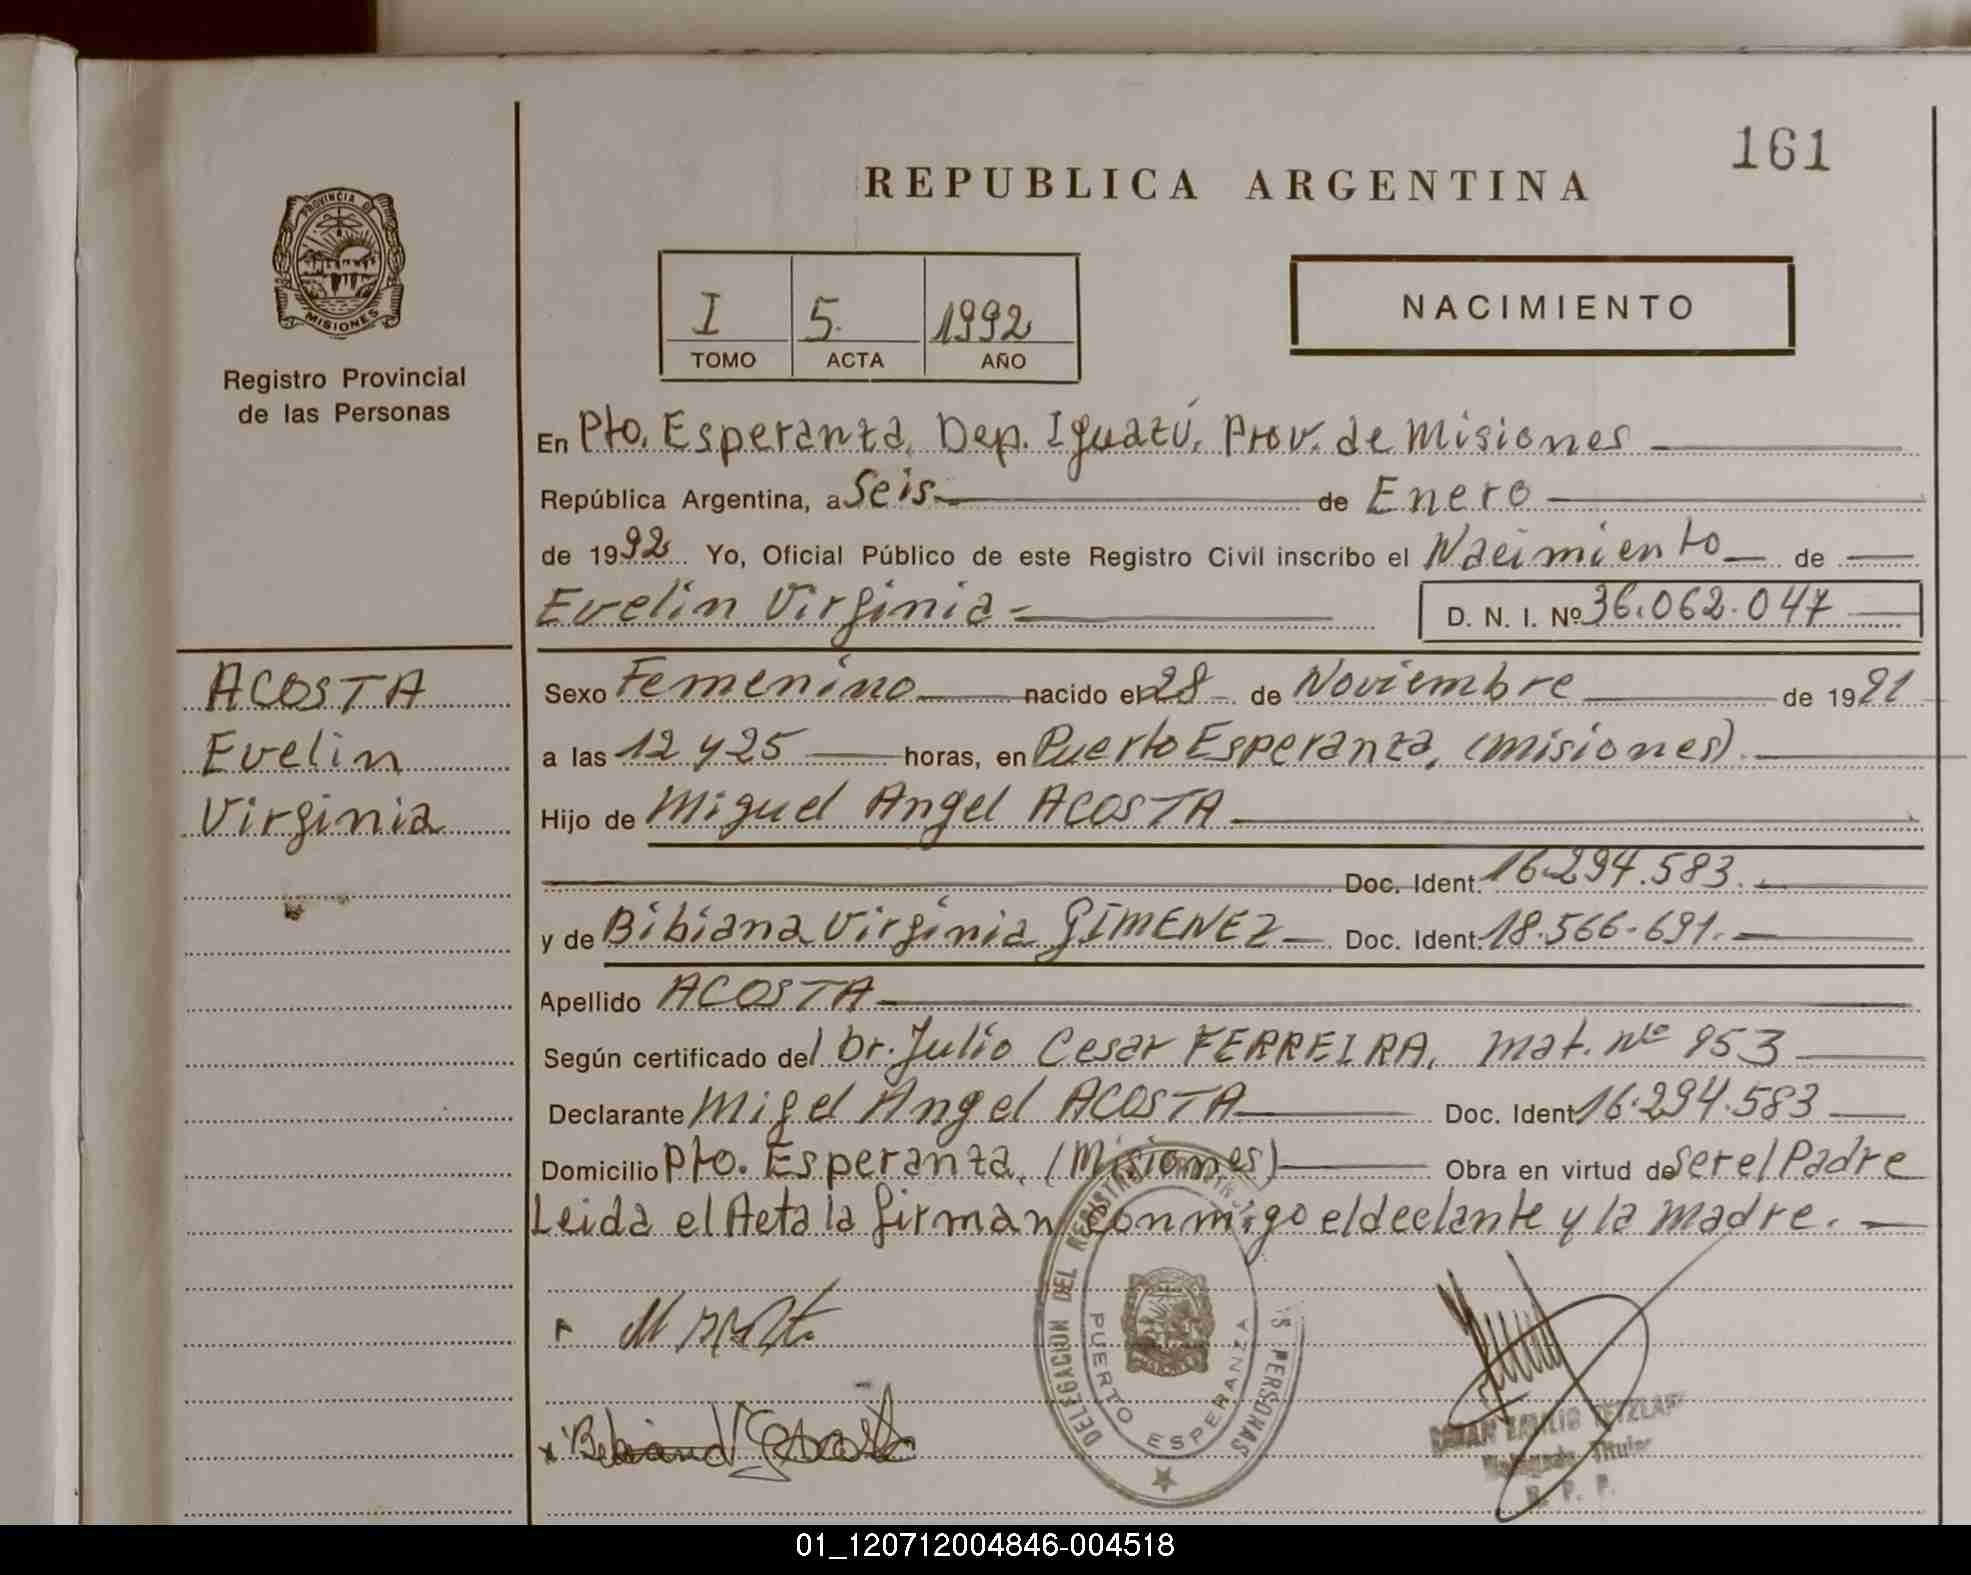 161
REPUBLICA ARGENTINA
PROVINCIA DE
MISIONES
Registro Provincial
de las Personas
I 5. 1992
TOMO ACTA AÑO
NACIMIENTO
En Pto. Esperanza, Dep. Iguazú, Prov. de Misiones
República Argentina, a Seis de Enero
de 1992 Yo, Oficial Público de este Registro Civil inscribo el Nacimiento de
Evelin Virginia
D. N. I. Nº 36.062.047
ACOSTA
Evelin
Virginia
Sexo Femenino nacido el 28 de Noviembre de 1991
a las 12 y 25 horas, en Puerto Esperanza, (Misiones).
Hijo de Miguel Angel ACOSTA
Doc. Ident. 16.294.583.
y de Bibiana Virginia GIMENEZ Doc. Ident. 18.566.691.
Apellido ACOSTA
Según certificado del Dr. Julio Cesar FERREIRA, Mat. Nº 953
Declarante Migel Angel ACOSTA Doc. Ident 16.294.583
Domicilio Pto. Esperanza, (Misiones) Obra en virtud de Ser el Padre
Leida el Acta la firman conmigo el declante y la madre.
DELEGACION DEL REGISTRO PERSONAS
PUERTO ESPERANZA
Titular
R. P. P.
01_120712004846-004518